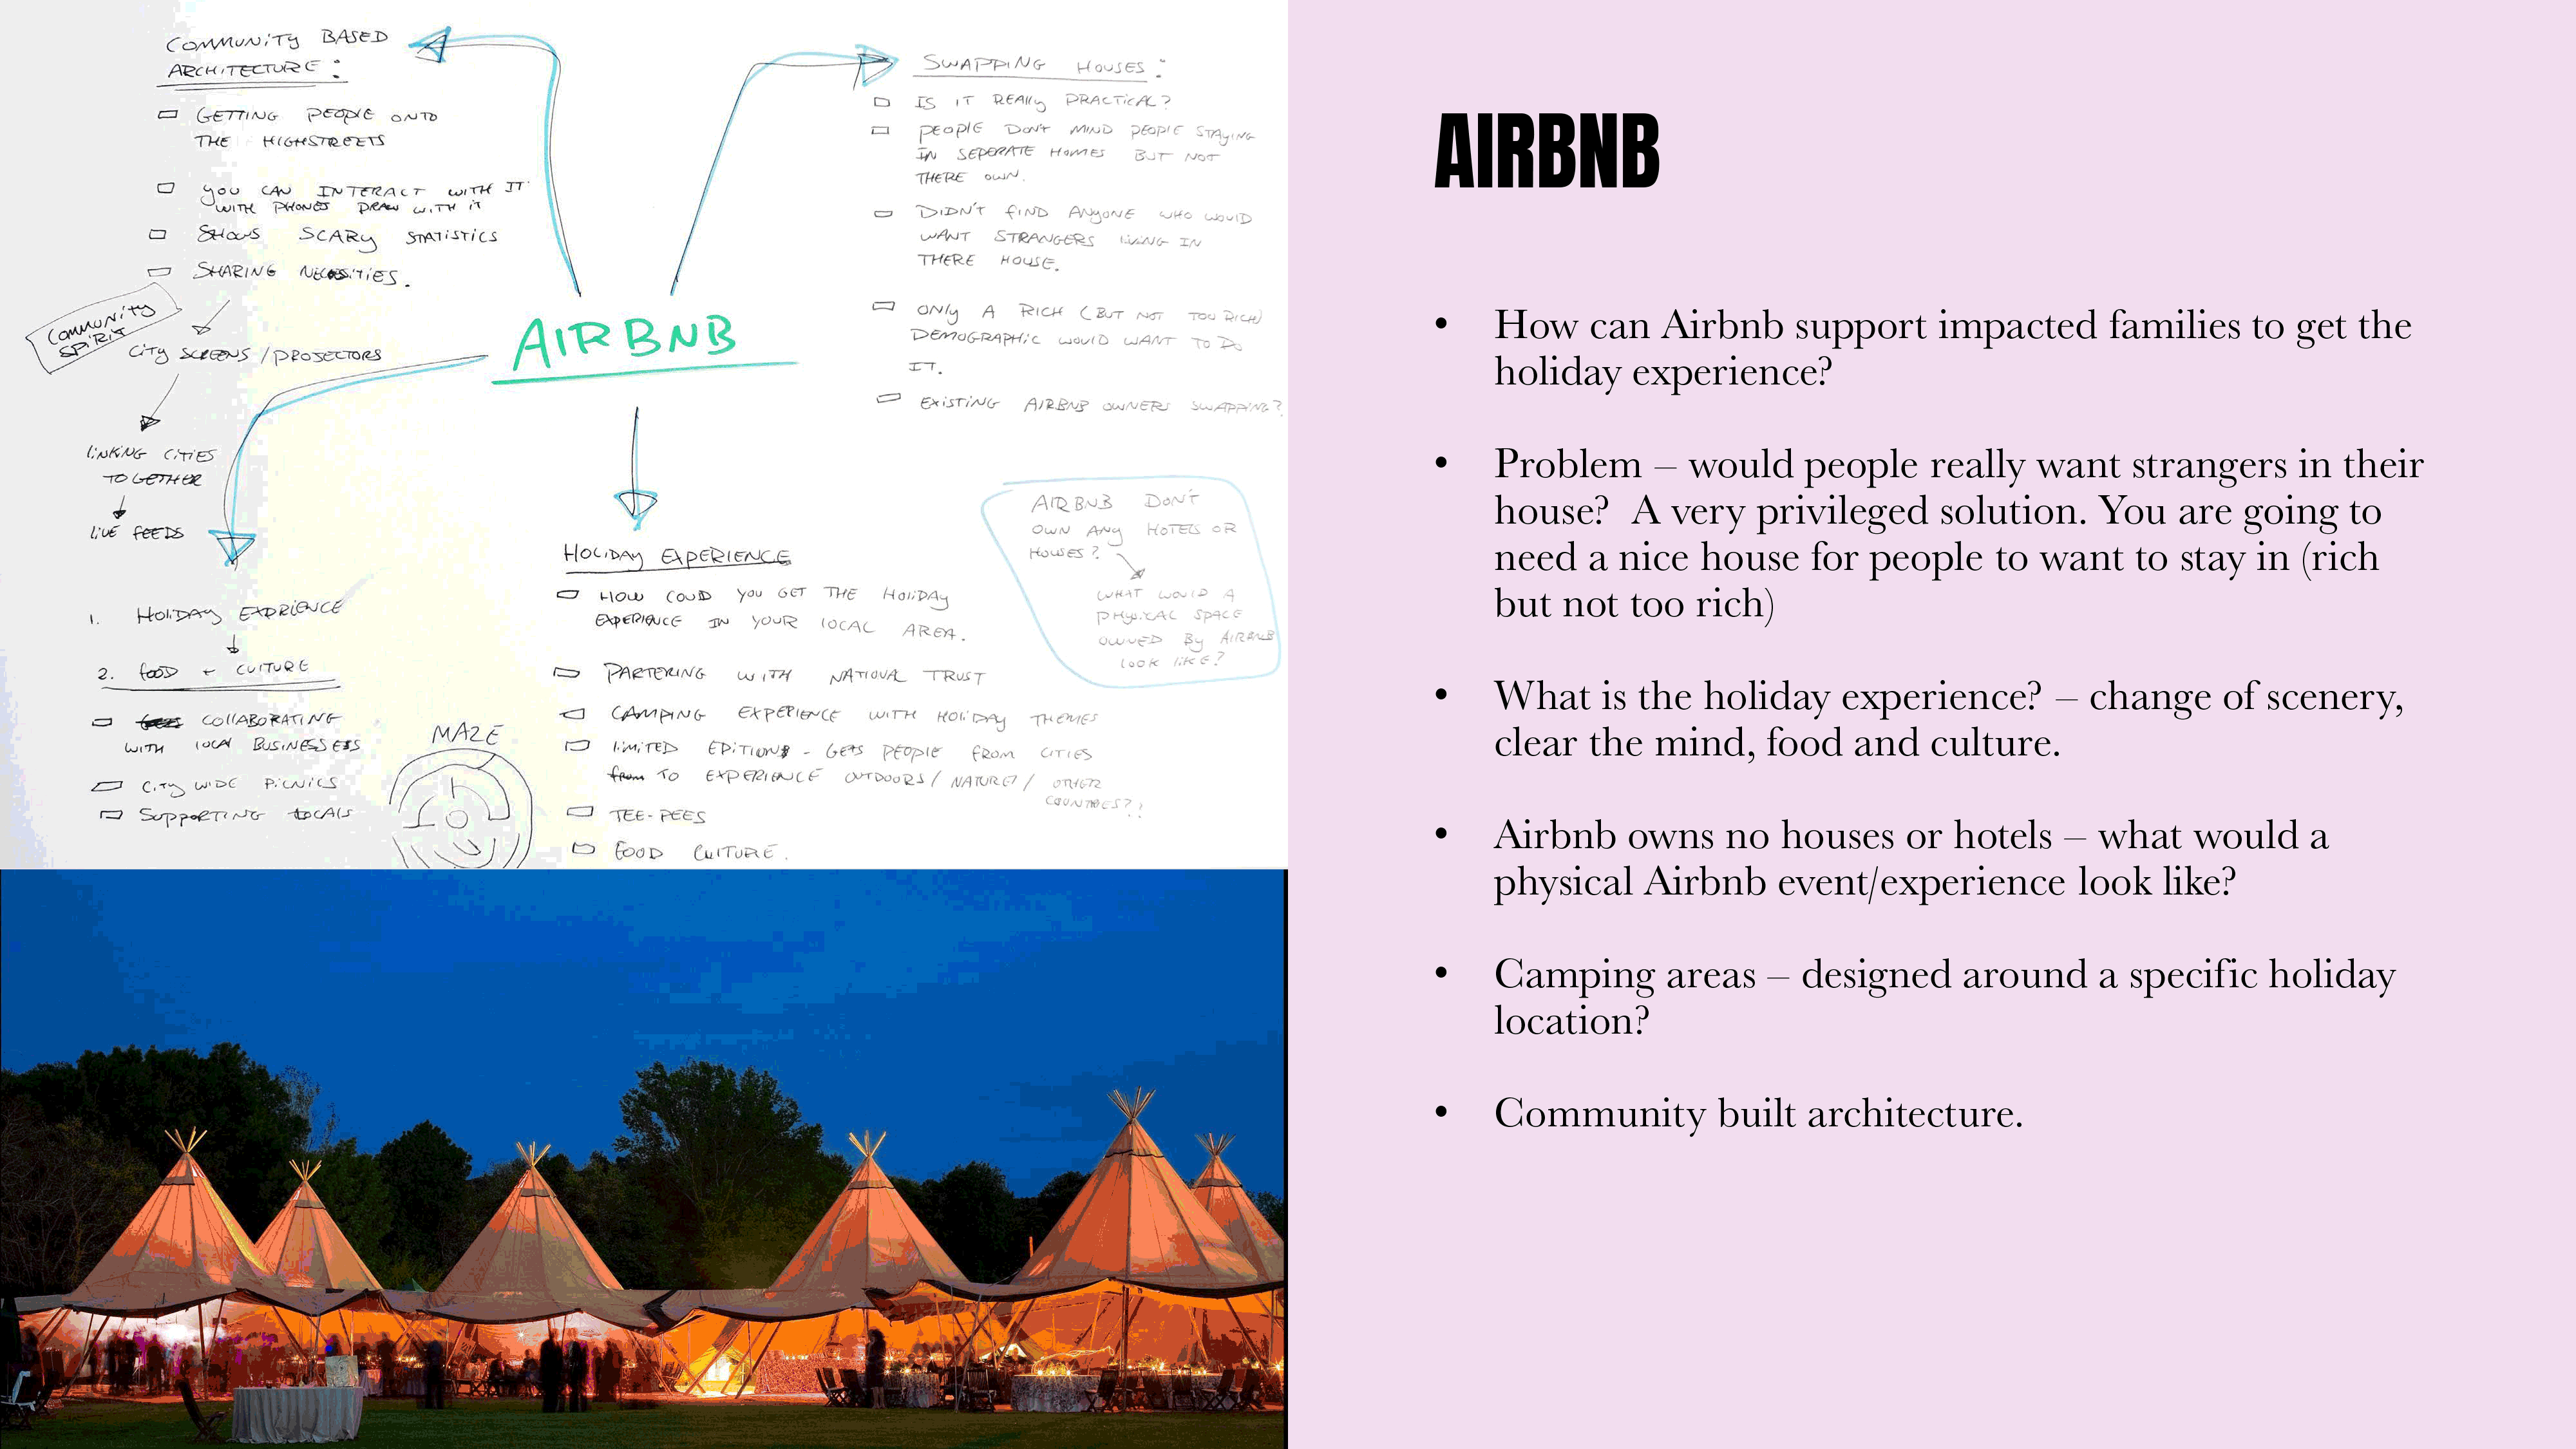 COMMUNITY BASED
ARCHITECTURE :
GETTING PEOPLE ONTO
THE HIGHSTREETS
YOU CAN INTERACT WITH IT
WITH PHONES DRAW WITH IT
SHOWS SCARY STATISTICS
SHARING NECESITIES.
COMMUNITY
SPIRIT
CITY SCREENS / PROJECTORS
LINKING CITIES
TOGETHER
LIVE FEEDS
SWAPPING HOUSES :
IS IT REALLY PRACTICAL?
PEOPLE DON'T MIND PEOPLE STAYING
IN SEPERATE HOMES BUT NOT
THERE OWN.
DIDN'T FIND ANYONE WHO WOULD
WANT STRANGERS LIVING IN
THERE HOUSE.
ONLY A RICH (BUT NOT TOO RICH)
DEMOGRAPHIC WOULD WANT TO DO
IT.
EXISTING AIRBNB OWNERS SWAPPING?
AIRBNB
1. HOLIDAY EXPRIENCE
2. FOOD + CULTURE
COLLABORATING
WITH LOCAL BUSINESSESS
CITY WIDE PICNICS
SUPPORTING LOCALS
MAZE
HOLIDAY EXPERIENCE
HOW COUD YOU GET THE HOLIDAY
EXPERIENCE IN YOUR LOCAL AREA.
PARTERING WITH NATIONAL TRUST
CAMPING EXPERIENCE WITH HOLIDAY THEMES
LIMITED EDITIONS - GETS PEOPLE FROM CITIES
from TO EXPERIENCE OUTDOORS / NATURE / OTHER
COUNTRIES?!
TEE-PEES
FOOD CULTURE.
AIRBNB DON'T
OWN ANY HOTELS OR
HOUSES?
WHAT WOULD A
PHYSICAL SPACE
OWNED BY AIRBNB
LOOK LIKE?
AIRBNB
• How can Airbnb support impacted families to get the
holiday experience?
• Problem – would people really want strangers in their
house? A very privileged solution. You are going to
need a nice house for people to want to stay in (rich
but not too rich)
• What is the holiday experience? – change of scenery,
clear the mind, food and culture.
• Airbnb owns no houses or hotels – what would a
physical Airbnb event/experience look like?
• Camping areas – designed around a specific holiday
location?
• Community built architecture.